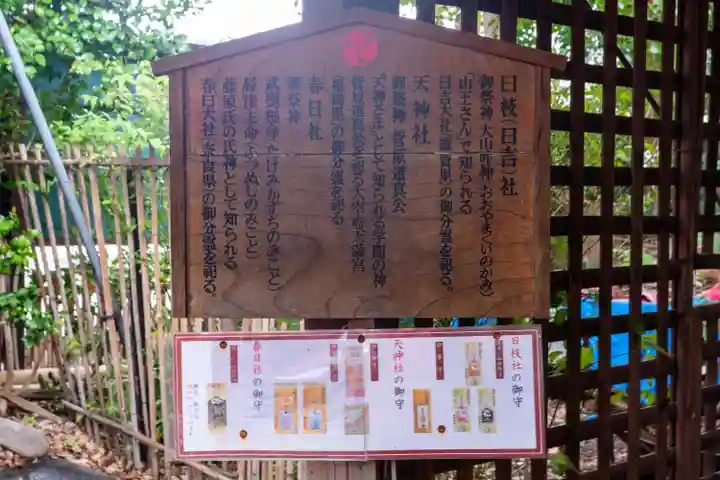 日枝(日吉)社
御祭神 大山咋神(おおやまくいのかみ)
「山王さん」で知られる
日吉大社(滋賀県)の御分霊を祀る。
天神社
御祭神 菅原道真公
「天神さま」として知られる学問の神
菅原道真公を祀る太宰府天満宮
(福岡県)の御分霊を祀る
春日社
御祭神
武甕槌命(たけみかずちのみこと)
経津主命(ふつぬしのみこと)
藤原氏の氏神として知られる
春日大社(奈良県)の御分霊を祀る。
日枝社の御守
天神社の御守
春日社の御守